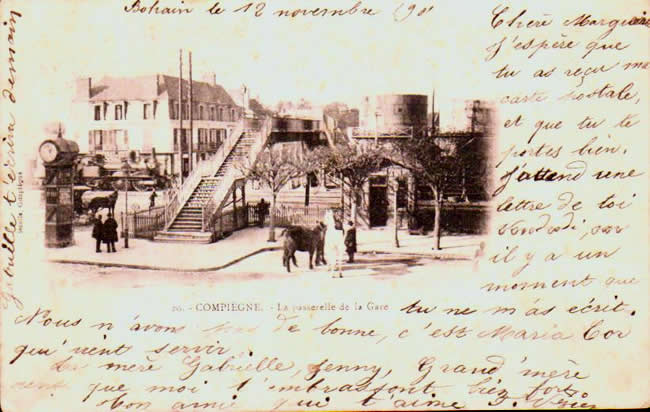 Bohain le 12 novembre 1901
Chère Marguerite
J'espère que
tu as reçu ma
carte postale,
et que tu te
portes bien.
J'attend une
lettre de toi
Vendredi, car
il y a un
moment que
tu ne m'as écrit.
Gabrielle t'écrira demain
20. - COMPIÈGNE. - La passerelle de la Gare
Nous n'avons pas de bonne, c'est Maria Cor
qui vient servir.
mère Gabrielle, Jenny, Grand'mère
que moi t'embrassont bien fort.
bon amie qui t'aime